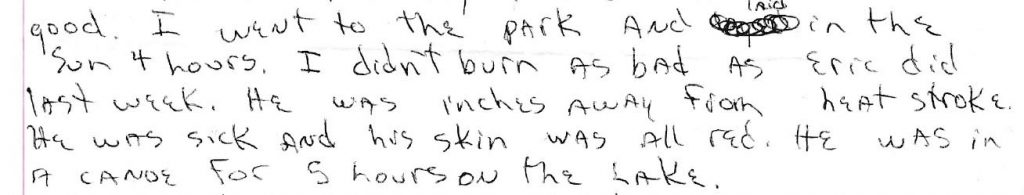 good. I went to the park And laid in the
Sun 4 hours. I didn't burn As bad As Eric did
last week. He was inches AwAy from heat stroke.
He was sick And his skin was All red. He was in
A canoe for 5 hours on the Lake.